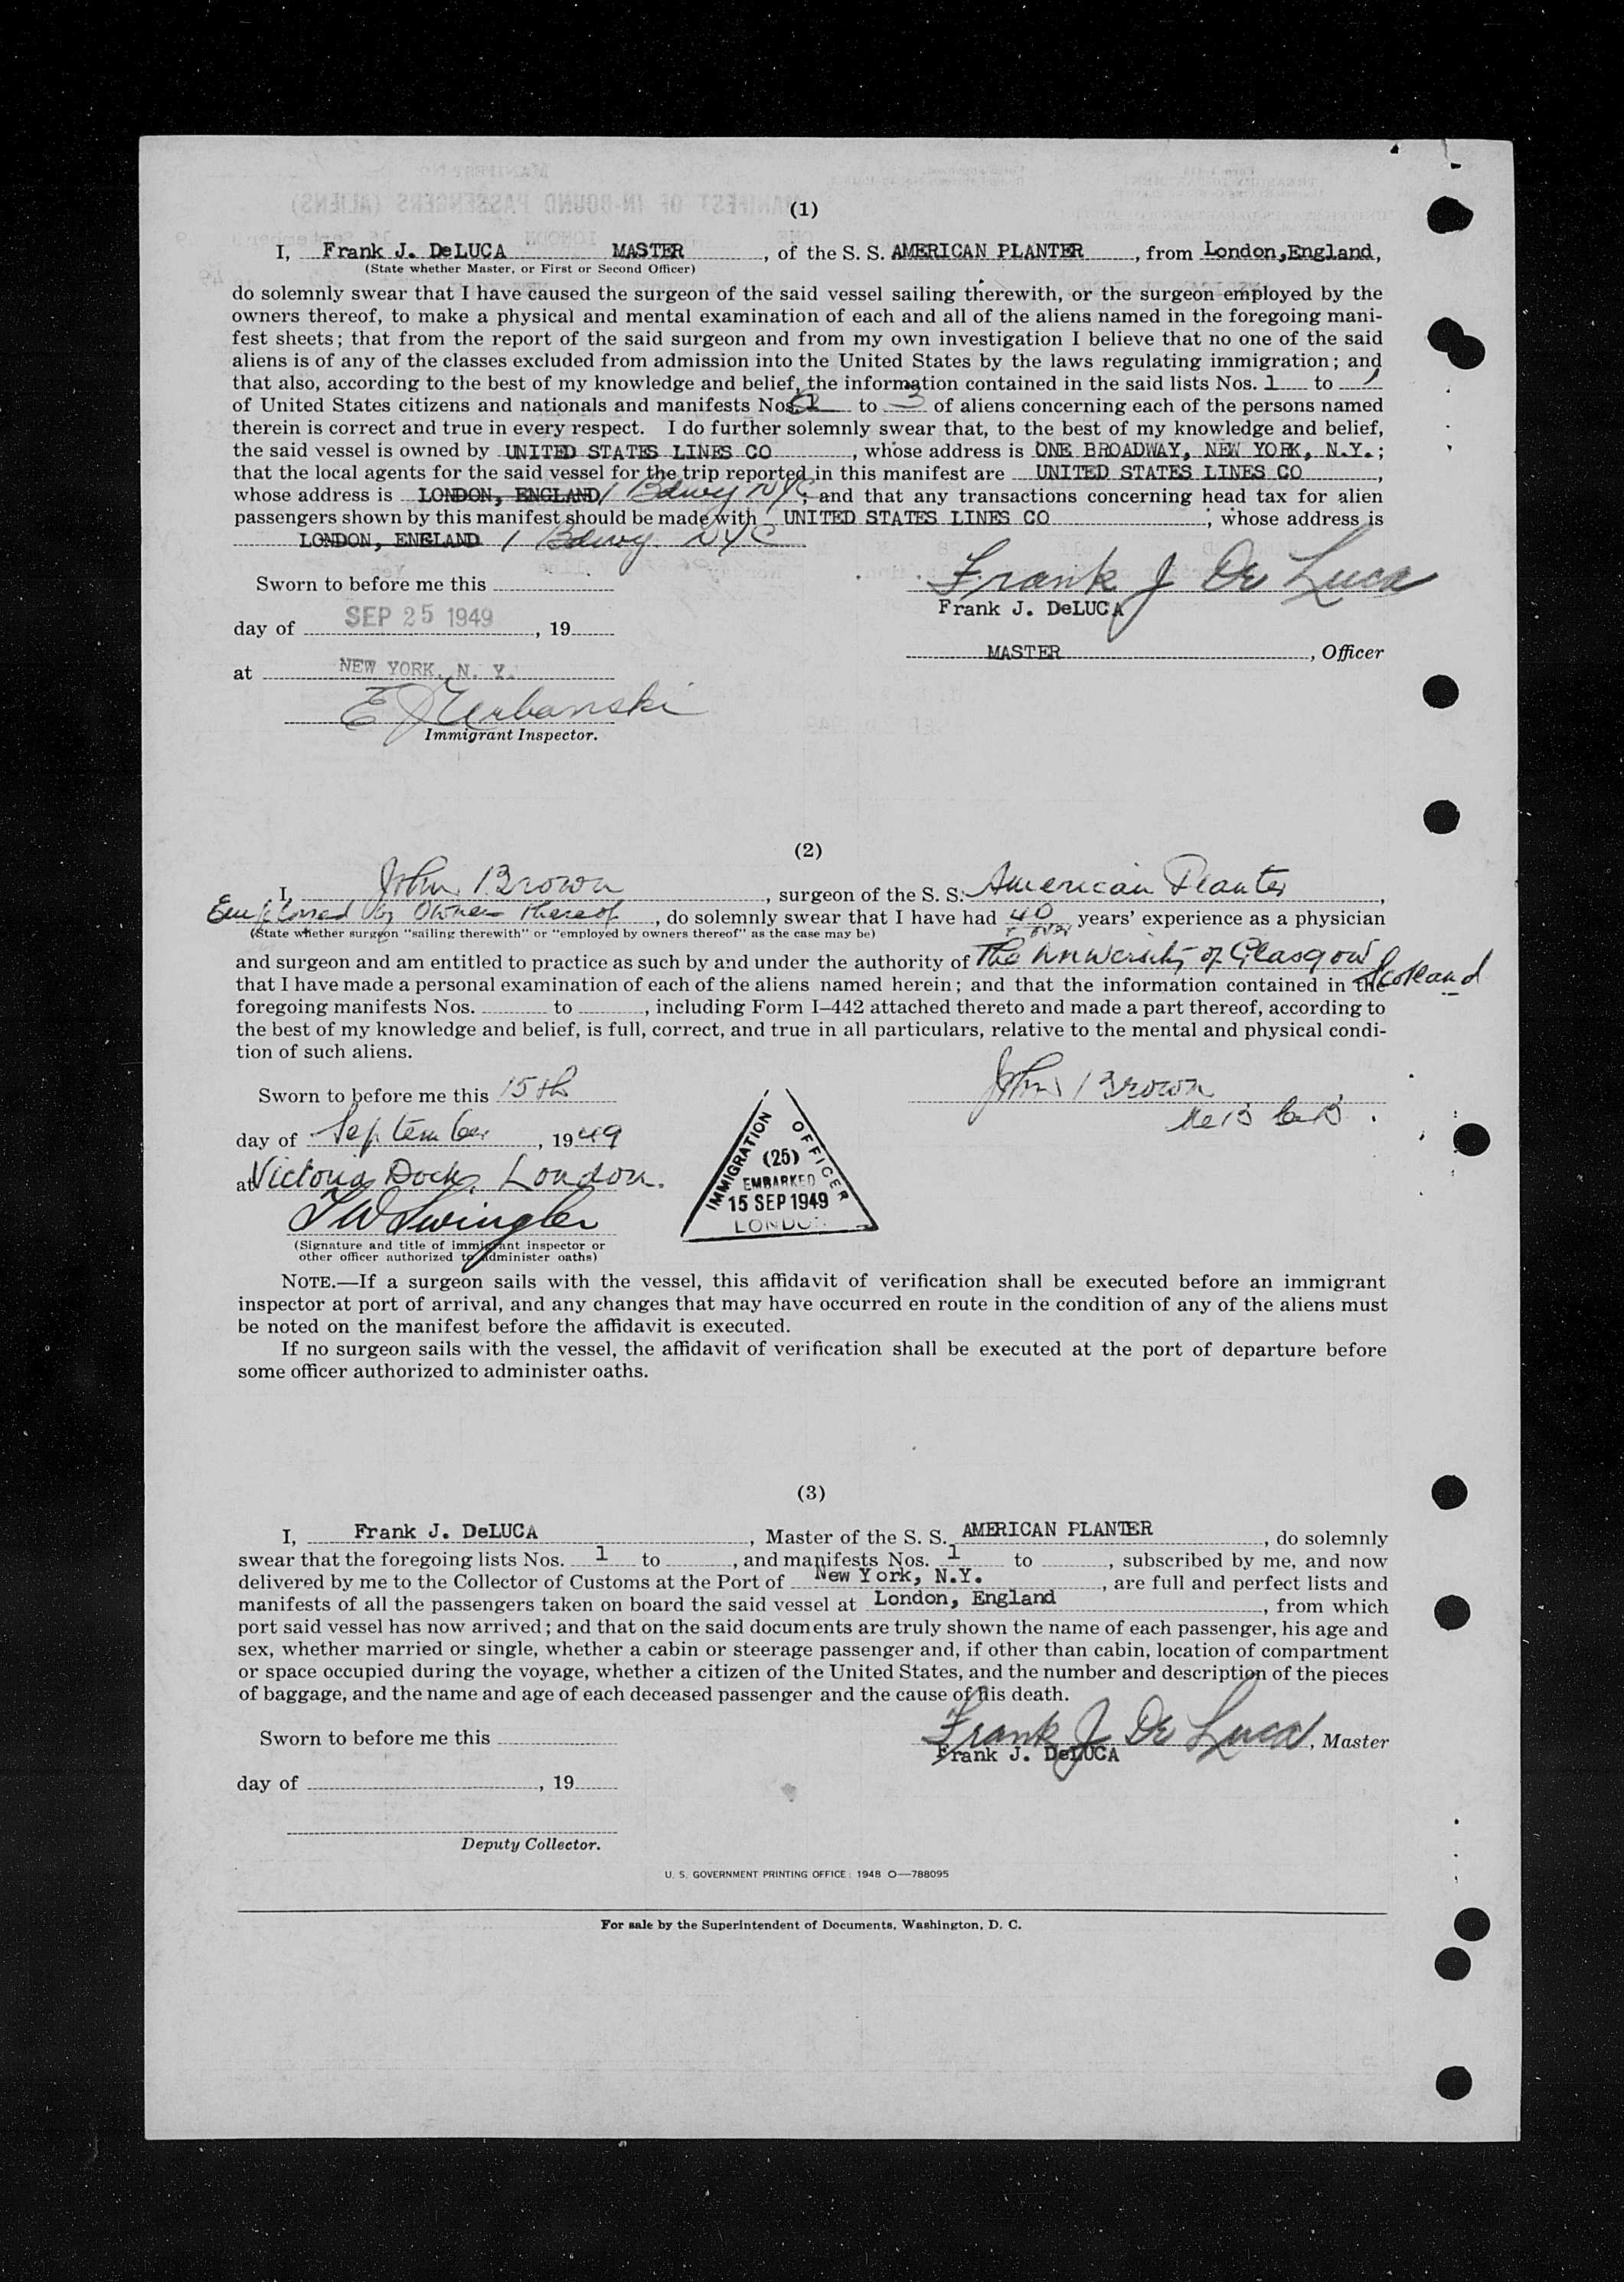 (1)
I, Frank J. DeLUCA MASTER, of the S. S. AMERICAN PLANTER, from London, England,
(State whether Master, or First or Second Officer)
do solemnly swear that I have caused the surgeon of the said vessel sailing therewith, or the surgeon employed by the
owners thereof, to make a physical and mental examination of each and all of the aliens named in the foregoing mani-
fest sheets; that from the report of the said surgeon and from my own investigation I believe that no one of the said
aliens is of any of the classes excluded from admission into the United States by the laws regulating immigration; and
that also, according to the best of my knowledge and belief, the information contained in the said lists Nos. 1 to 1
of United States citizens and nationals and manifests Nos. 1 to 3 of aliens concerning each of the persons named
therein is correct and true in every respect. I do further solemnly swear that, to the best of my knowledge and belief,
the said vessel is owned by UNITED STATES LINES CO, whose address is ONE BROADWAY, NEW YORK, N.Y.;
that the local agents for the said vessel for the trip reported in this manifest are UNITED STATES LINES CO,
whose address is LONDON, ENGLAND 1 Bdwy NYC, and that any transactions concerning head tax for alien
passengers shown by this manifest should be made with UNITED STATES LINES CO, whose address is
LONDON, ENGLAND 1 Bdwy. NYC
Sworn to before me this
Frank J De Luca
Frank J. DeLUCA
day of SEP 25 1949, 19
MASTER, Officer
at NEW YORK, N. Y.
E J Urbanski
Immigrant Inspector.
(2)
I, John Brown, surgeon of the S. S. American Planter,
Employed by Owners thereof, do solemnly swear that I have had 40 years' experience as a physician
(State whether surgeon "sailing therewith" or "employed by owners thereof" as the case may be)
and surgeon and am entitled to practice as such by and under the authority of The University of Glasgow Scotland
that I have made a personal examination of each of the aliens named herein; and that the information contained in the
foregoing manifests Nos. to , including Form I-442 attached thereto and made a part thereof, according to
the best of my knowledge and belief, is full, correct, and true in all particulars, relative to the mental and physical condi-
tion of such aliens.
Sworn to before me this 15th
John Brown
day of September, 1949
at Victoria Dock, London.
IMMIGRATION OFFICER
(25)
EMBARKED
15 SEP 1949
LONDON
T W Swingler
(Signature and title of immigrant inspector or
other officer authorized to administer oaths)
NOTE.—If a surgeon sails with the vessel, this affidavit of verification shall be executed before an immigrant
inspector at port of arrival, and any changes that may have occurred en route in the condition of any of the aliens must
be noted on the manifest before the affidavit is executed.
If no surgeon sails with the vessel, the affidavit of verification shall be executed at the port of departure before
some officer authorized to administer oaths.
(3)
I, Frank J. DeLUCA, Master of the S. S. AMERICAN PLANTER, do solemnly
swear that the foregoing lists Nos. 1 to , and manifests Nos. 1 to , subscribed by me, and now
delivered by me to the Collector of Customs at the Port of New York, N.Y., are full and perfect lists and
manifests of all the passengers taken on board the said vessel at London, England, from which
port said vessel has now arrived; and that on the said documents are truly shown the name of each passenger, his age and
sex, whether married or single, whether a cabin or steerage passenger and, if other than cabin, location of compartment
or space occupied during the voyage, whether a citizen of the United States, and the number and description of the pieces
of baggage, and the name and age of each deceased passenger and the cause of his death.
Sworn to before me this
Frank J De Luca, Master
Frank J. DeLUCA
day of , 19
Deputy Collector.
U. S. GOVERNMENT PRINTING OFFICE: 1948 O—788095
For sale by the Superintendent of Documents, Washington, D. C.